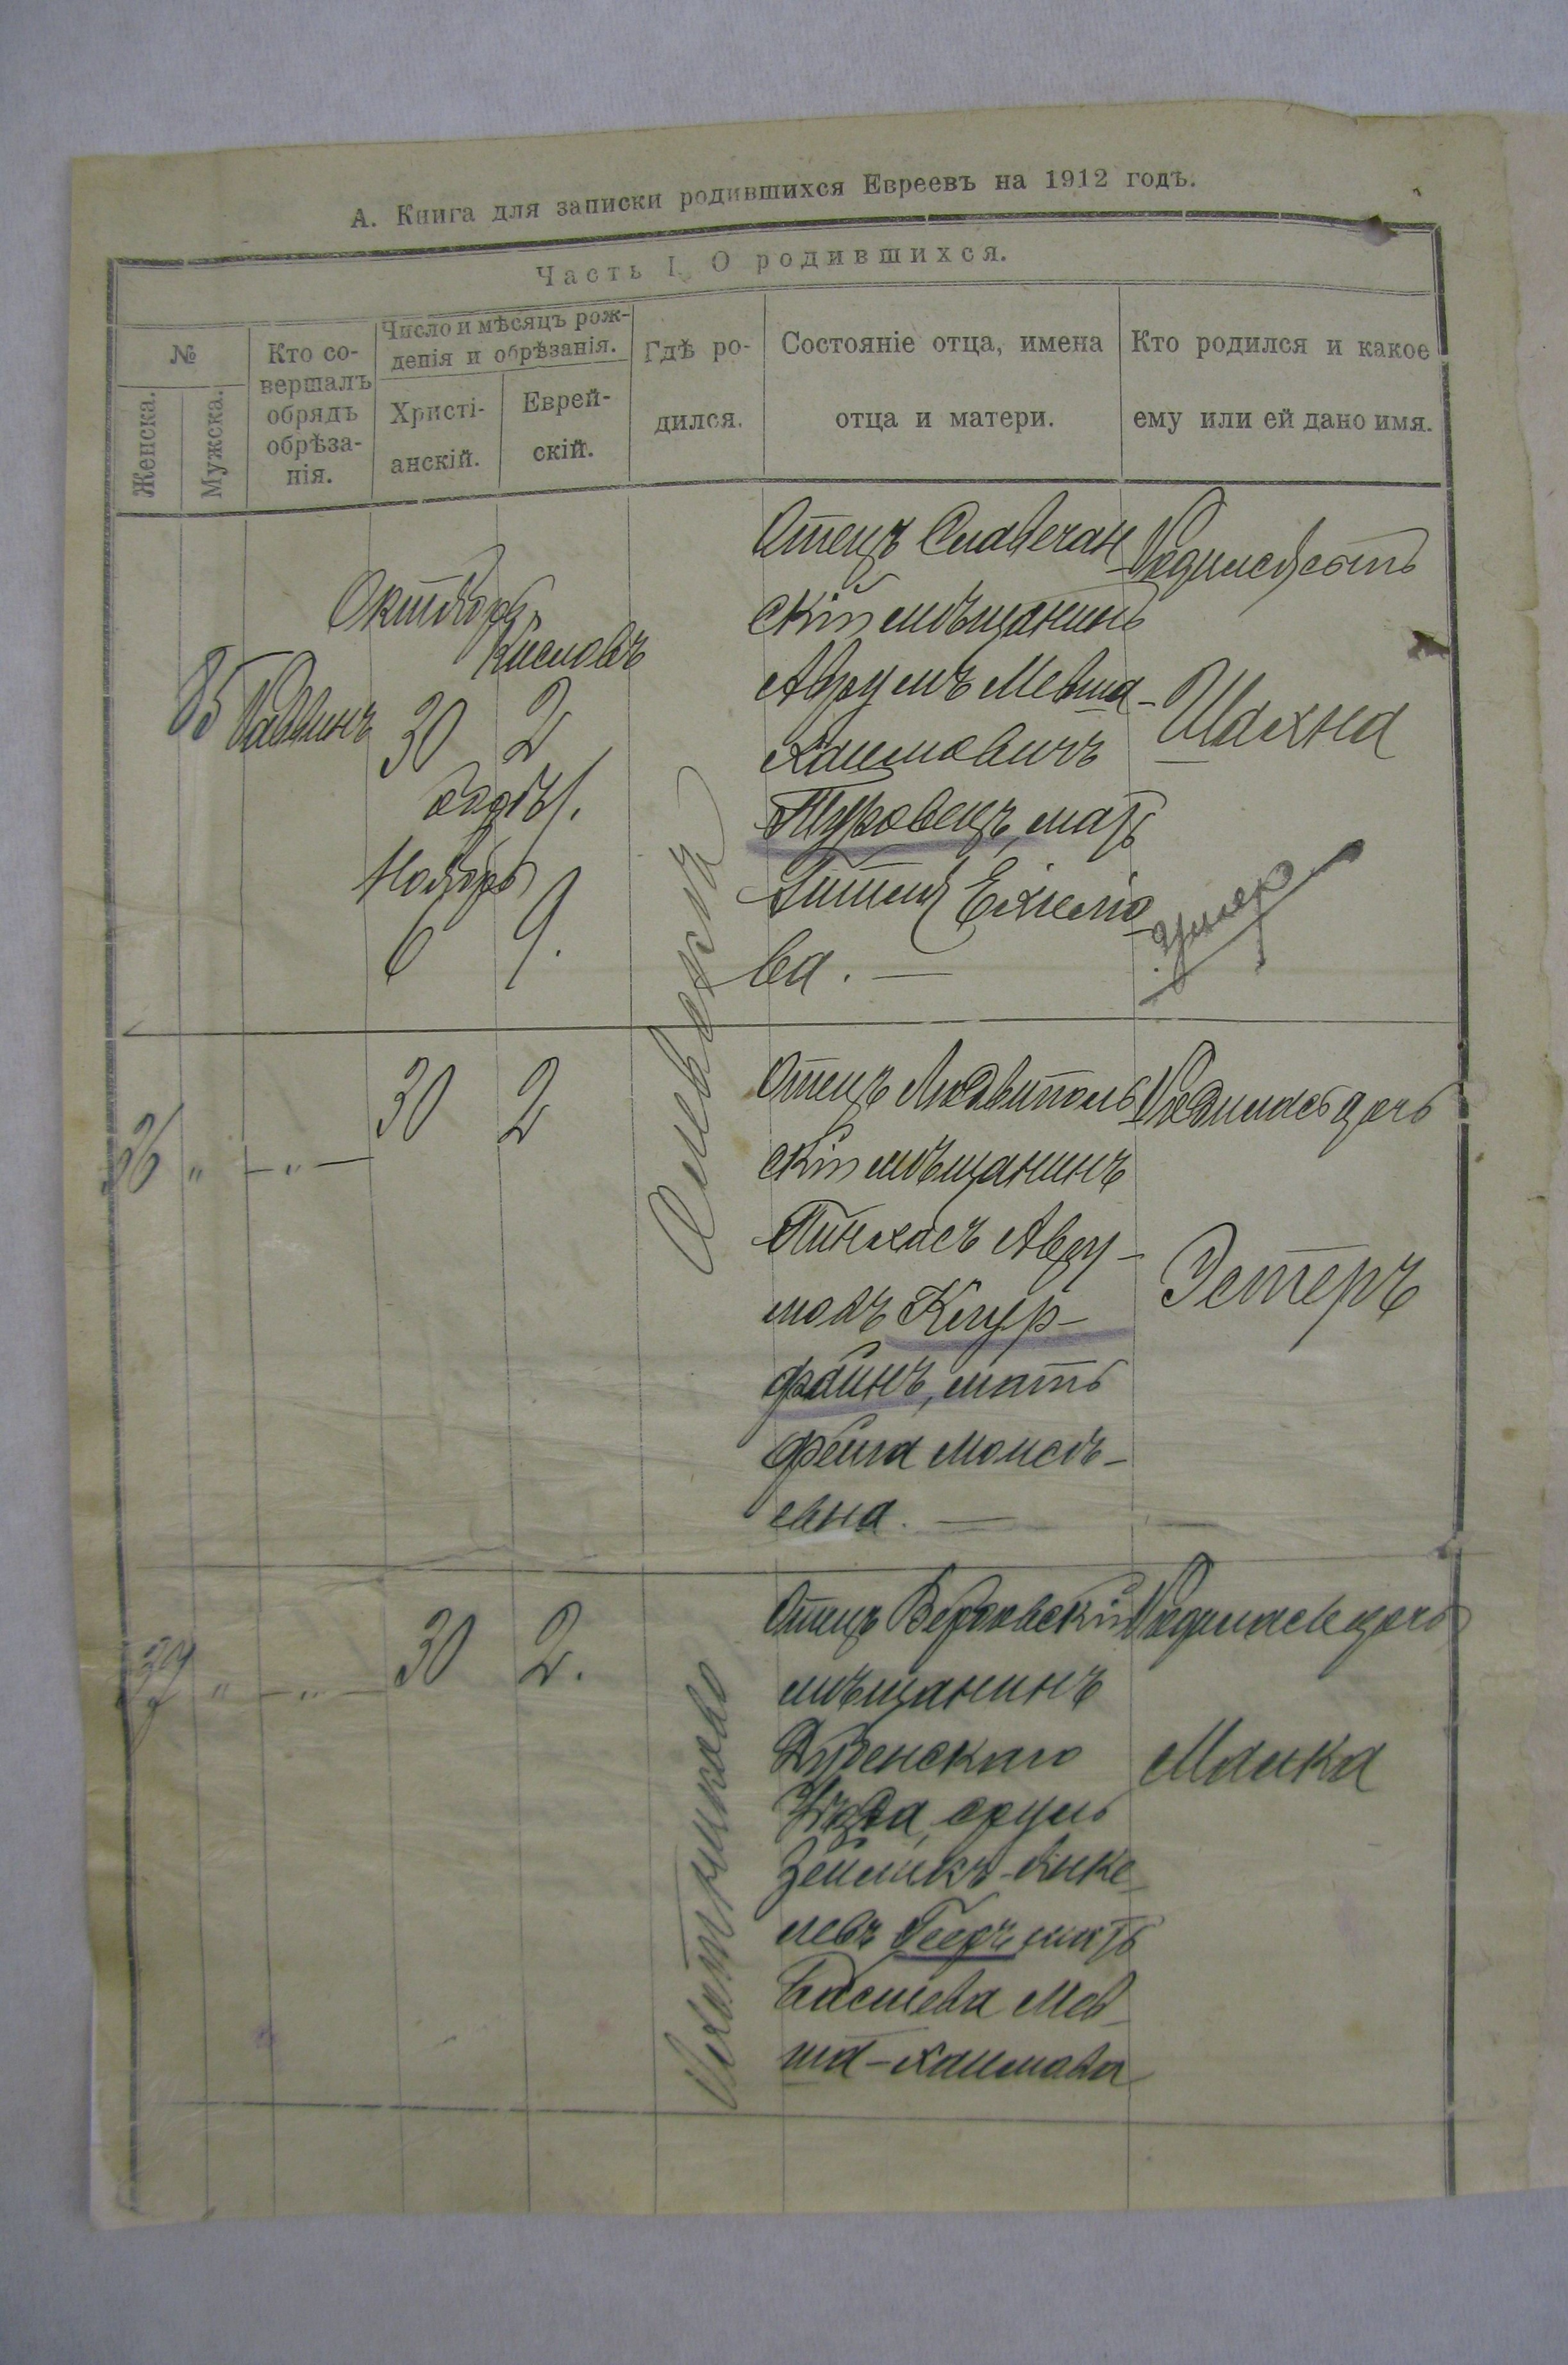 А. Книга для записки родившихся Евреевъ на 1912 годъ.
Часть I. О родившихся.
№
Женска.
Мужска.
Кто со-
вершалъ
обрядъ
обрѣза-
нія.
Число и мѣсяцъ рож-
денія и обрѣзанія.
Христі-
анскій.
Еврей-
скій.
Гдѣ ро-
дился.
Состояніе отца, имена
отца и матери.
Кто родился и какое
ему или ей дано имя.
85
Раввинъ
Октябрь
Кисловъ
30 2
Ноябрь
6 9.
Олевскъ
Отецъ Славечан
скій мѣщанинъ
Аврумъ Мевша-
Хаимовичъ
Туровецъ, мать
Гитля Ехиело
ва. —
Родился сынъ
Шахна
умеръ
36 " —"—
30 2
Отецъ Людвиполь
скій мѣщанинъ
Пинхасъ Авру-
мовъ Клур-
файнъ, мать
Фейга Моисѣ-
евна. —
Родилась дочь
Эстеръ
37 " —"—
30 2.
Отецъ Верховскій
мѣщанинъ
Дубенскаго
Уѣзда, Сруль
Зейликъ-Янке-
левъ Геръ, мать
Басшева Мев
ша-Хаимова
Родилась дочь
Малка